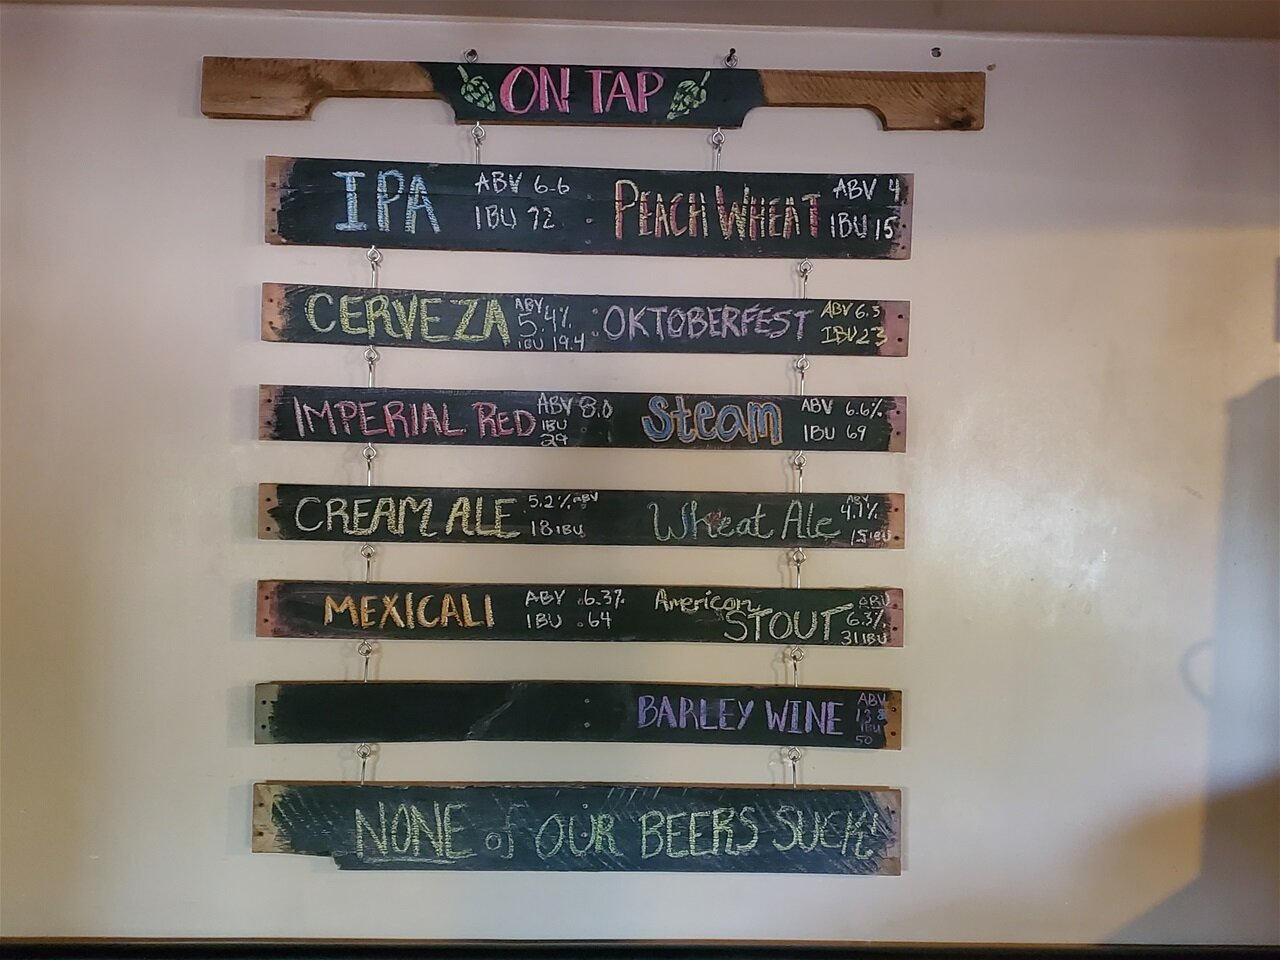 ON TAP
IPA ABV 6.6 IBU 72
PEACH WHEAT ABV 4 IBU 15
CERVEZA ABV 5.4% IBU 19.4
OKTOBERFEST ABV 6.3 IBU 23
IMPERIAL RED ABV 8.0 IBU 29
Steam ABV 6.6% IBU 69
CREAM ALE 5.2% ABV 18 IBU
Wheat Ale ABV 4.1% 15 IBU
MEXICALI ABV 6.3% IBU 64
American STOUT ABV 6.3% 31 IBU
BARLEY WINE ABV IBU 50
NONE of OUR BEERS SUCK!